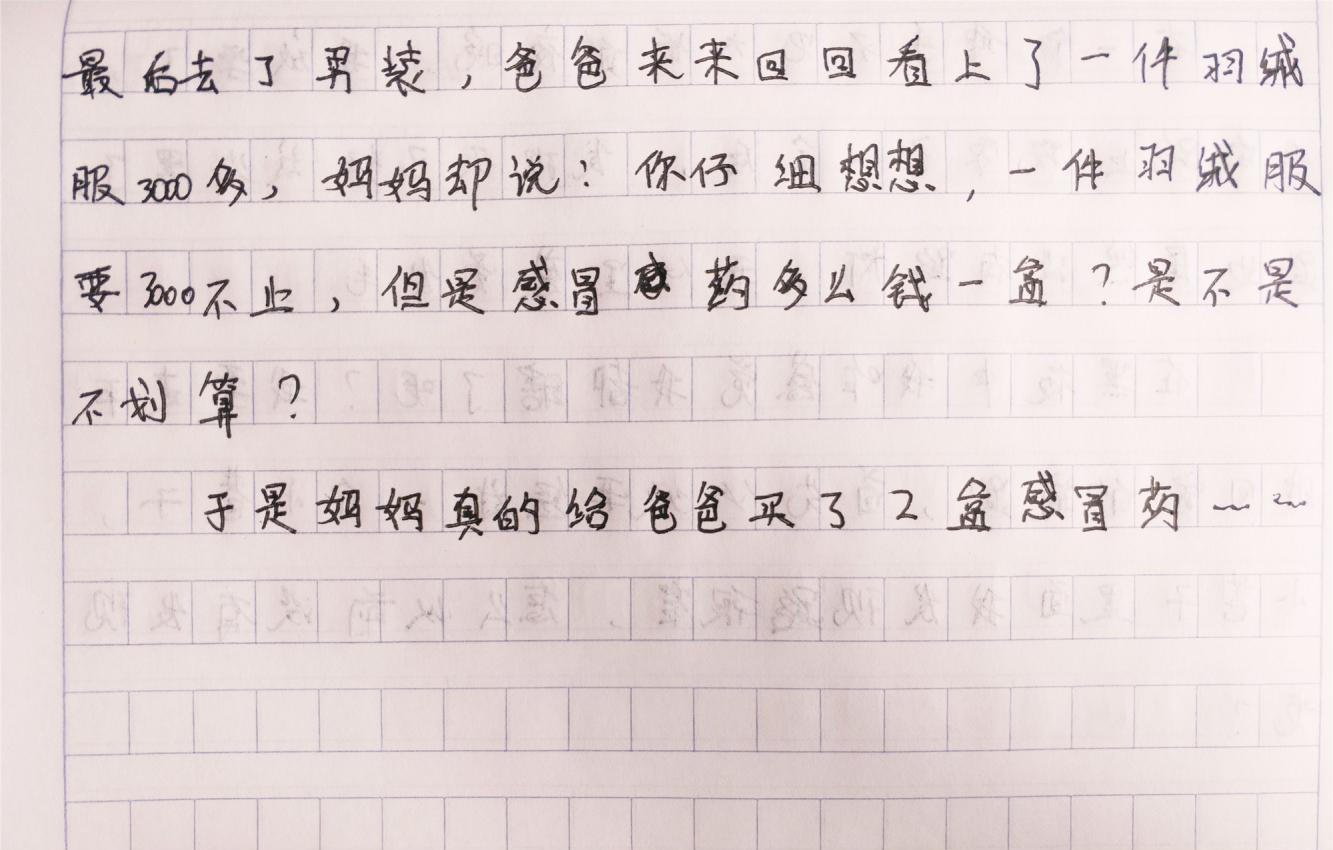 最后去了男装，爸爸来来回回看上了一件羽绒
服3000多，妈妈却说：你仔细想想，一件羽绒服
要3000不止，但是感冒药多么钱一盒？是不是
不划算？
于是妈妈真的给爸爸买了2盒感冒药……